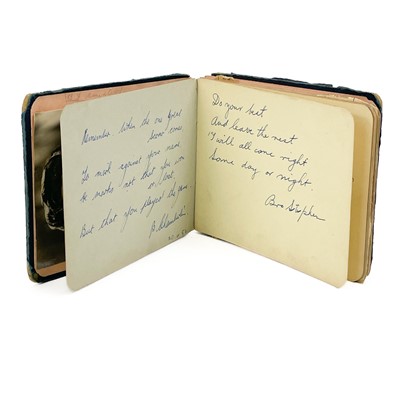 Remember When the one great
Scorer comes
To mark against your name
He marks not that you won
or lost
But that you played the game
B.
Do your best
And leave the rest
'Twill all come right
Some day or night.
Bro Stephen